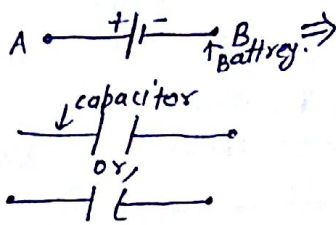 A + - B ⇒
↑ Battrey.
↓ capacitor
or,